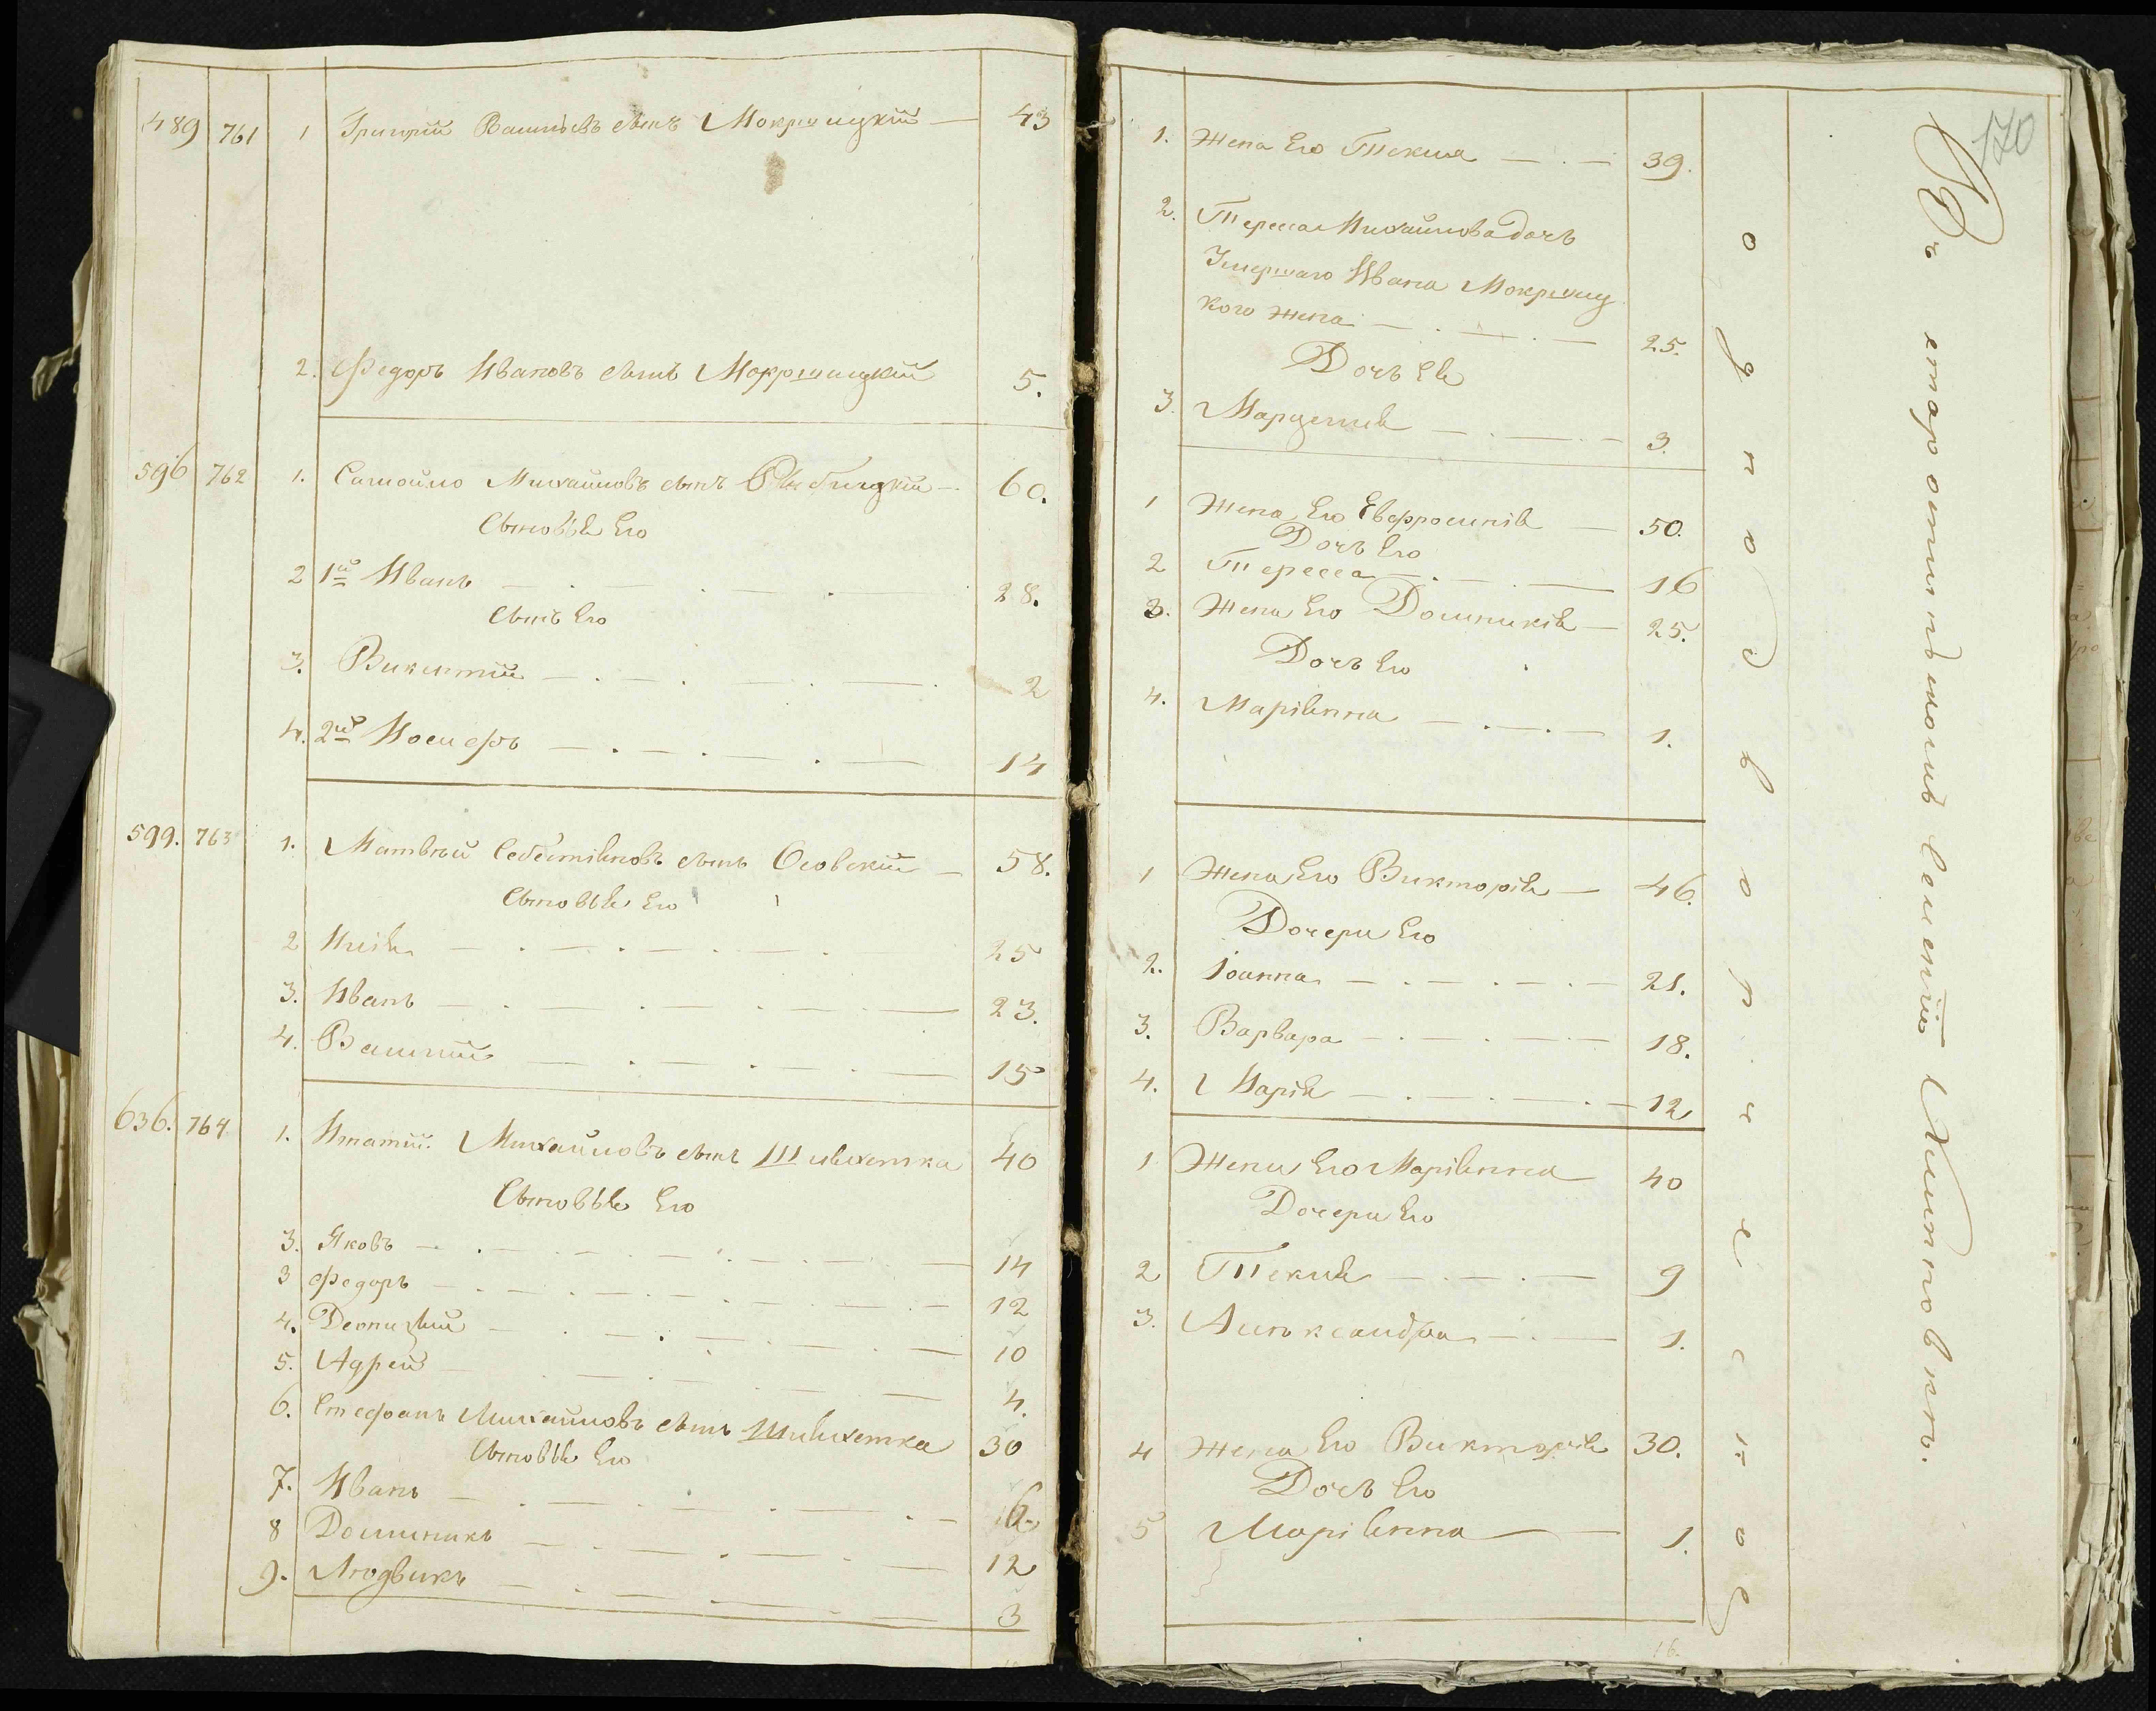 489 761 1 Григорий Васильевъ сынъ Мокржицкій — 43
2. Федоръ Ивановъ сынъ Мокржицкій 5.
596 762 1. Самойло Михайловъ сынъ Рыбицкій — 60.
Сыновья Его
2 1й Иванъ 28.
Сынъ Его
3. Викентій 2
4. 2й Иосифъ 14
599. 763 1. Матвѣй Себестіяновъ сынъ Осовскій — 58.
Сыновья Его
2 Илія 25
3. Иванъ 23.
4. Василій 15
636. 764 1. Игнатій Михайловъ сынъ 40
Сыновья Его
3. Яковъ 14
3 Федоръ 12
4. 10
5. Адрей 4.
6. Стефанъ Михайловъ сынъ 30
Сыновья Его
7. Иванъ
8 Доминикъ 12
9. Людвикъ 3
170
1. Жена Его Текля 39.
2. Тересса Михайлова дочь
Умершаго Ивана Мокржиц
кого жена 25.
Дочь Ея
3. Марцелля 3.
1 Жена Его Евфросинія 50.
Дочь Его
2 Тересса 16
3. Жена Его Доминикія 25.
Дочь Его
4. Маріянна 1.
1 Жена Его Викторія 46.
Дочери Его
2. Іоанна 21.
3. Варвара 18.
4. Марія 12
1 Жена Его Маріянна 40
Дочери Его
2 Текля 9
3. Александра 1.
4 Жена Его Викторія 30.
Дочь Его
5 Маріянна 1.
16.
однодворческое
Въ староста